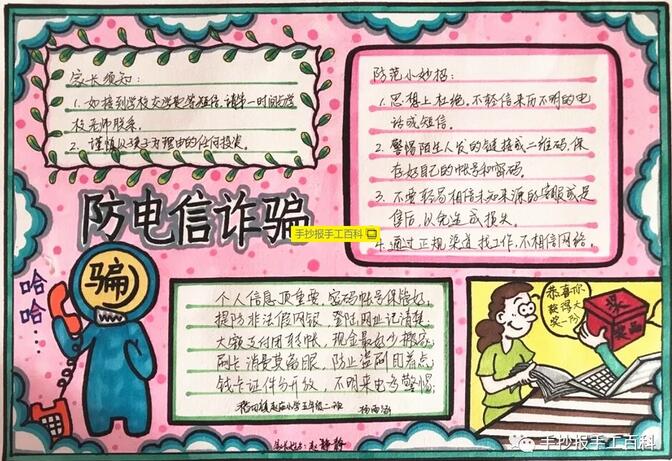 家长须知:
1. 如接到学校交学费等短信,请第一时间与学
校老师联系。
2. 谨慎以孩子为理由的任何投资。
防范小妙招:
1. 思想上杜绝,不轻信来历不明的电
话或短信。
2. 警惕陌生人发的链接或二维码,保
存好自己的帐号和密码。
3. 不要轻易相信未知来源的客服或是
售后,以免造成损失。
4. 通过正规渠道找工作,不相信网络。
防电信诈骗
手抄报手工百科
骗
哈
哈...
个人信息顶重要,密码帐号保管好,
提防非法假网银,登陆网址记清楚,
大额支付团转帐,现金最好少搬动,
刷卡消费莫离眼,防止盗刷因着点,
钱卡证件分开放,不明来电多警惕;
赵庙小学五年级二班
恭喜你
获得大
奖一份
奖品
手抄报手工百科